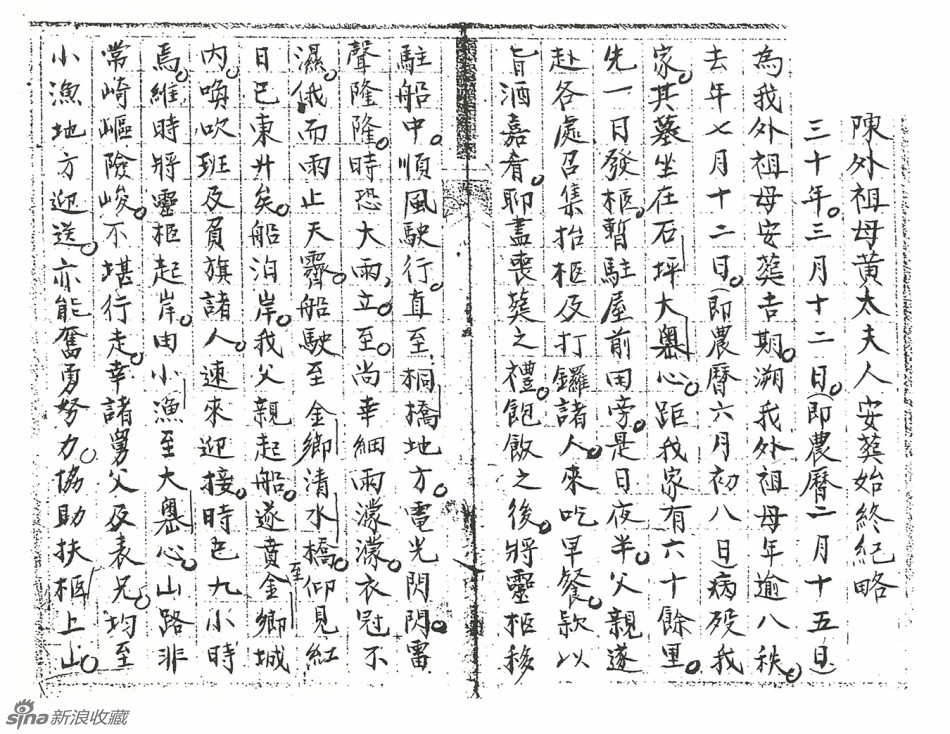 陳外祖母黃太夫人安葬始終紀略
三十年。三月十二日。(即農曆二月十五日)
為我外祖母安葬吉期。溯我外祖母年逾八秩。
去年七月十二日。(即農曆六月初八日)病歿我
家。其墓坐在石坪大嶴心。距我家有六十餘里。
先一日發柩。暫駐屋前田旁。是日夜半。父親遂
赴各處召集抬柩及打鑼諸人。來吃早餐。款以
旨酒嘉肴。聊盡喪葬之禮。飽飲之後。將靈柩移
駐船中。順風駛行。直至桐橋地方。電光閃閃。雷
聲隆隆。時恐大雨立至。尚幸細雨濛濛。衣冠不
濕。俄而雨止天霽。船駛至金鄉清水橋。仰見紅
日已東升矣。船泊岸。我父親起船。遂賁金鄉城
內。喚吹班及負旗諸人。速來迎接。時已九小時
焉。維時將靈柩起岸。由小漁至大嶴心。山路非
常崎嶇險峻。不堪行走。幸諸舅父及表兄。均至
小漁地方迎送。亦能奮勇努力。協助扶柩上山。
至
sina新浪收藏